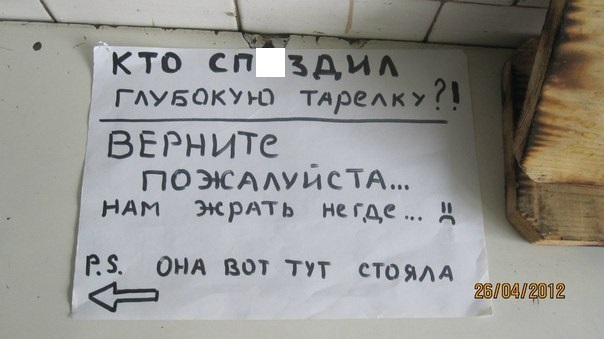 КТО СП ЗДИЛ
ГЛУБОКУЮ ТАРЕЛКУ?!
ВЕРНИТЕ
ПОЖАЛУЙСТА...
НАМ ЖРАТЬ НЕГДЕ... :(
P.S. ОНА ВОТ ТУТ СТОЯЛА
26/04/2012